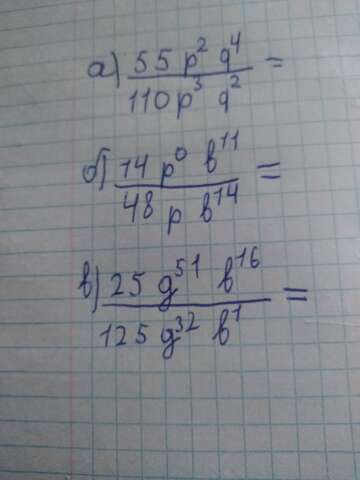 а) 55 p² q⁴ / 110 p³ q² =
б) 14 p⁰ b¹¹ / 48 p b¹⁴ =
в) 25 g⁵¹ b¹⁶ / 125 g³² b¹ =